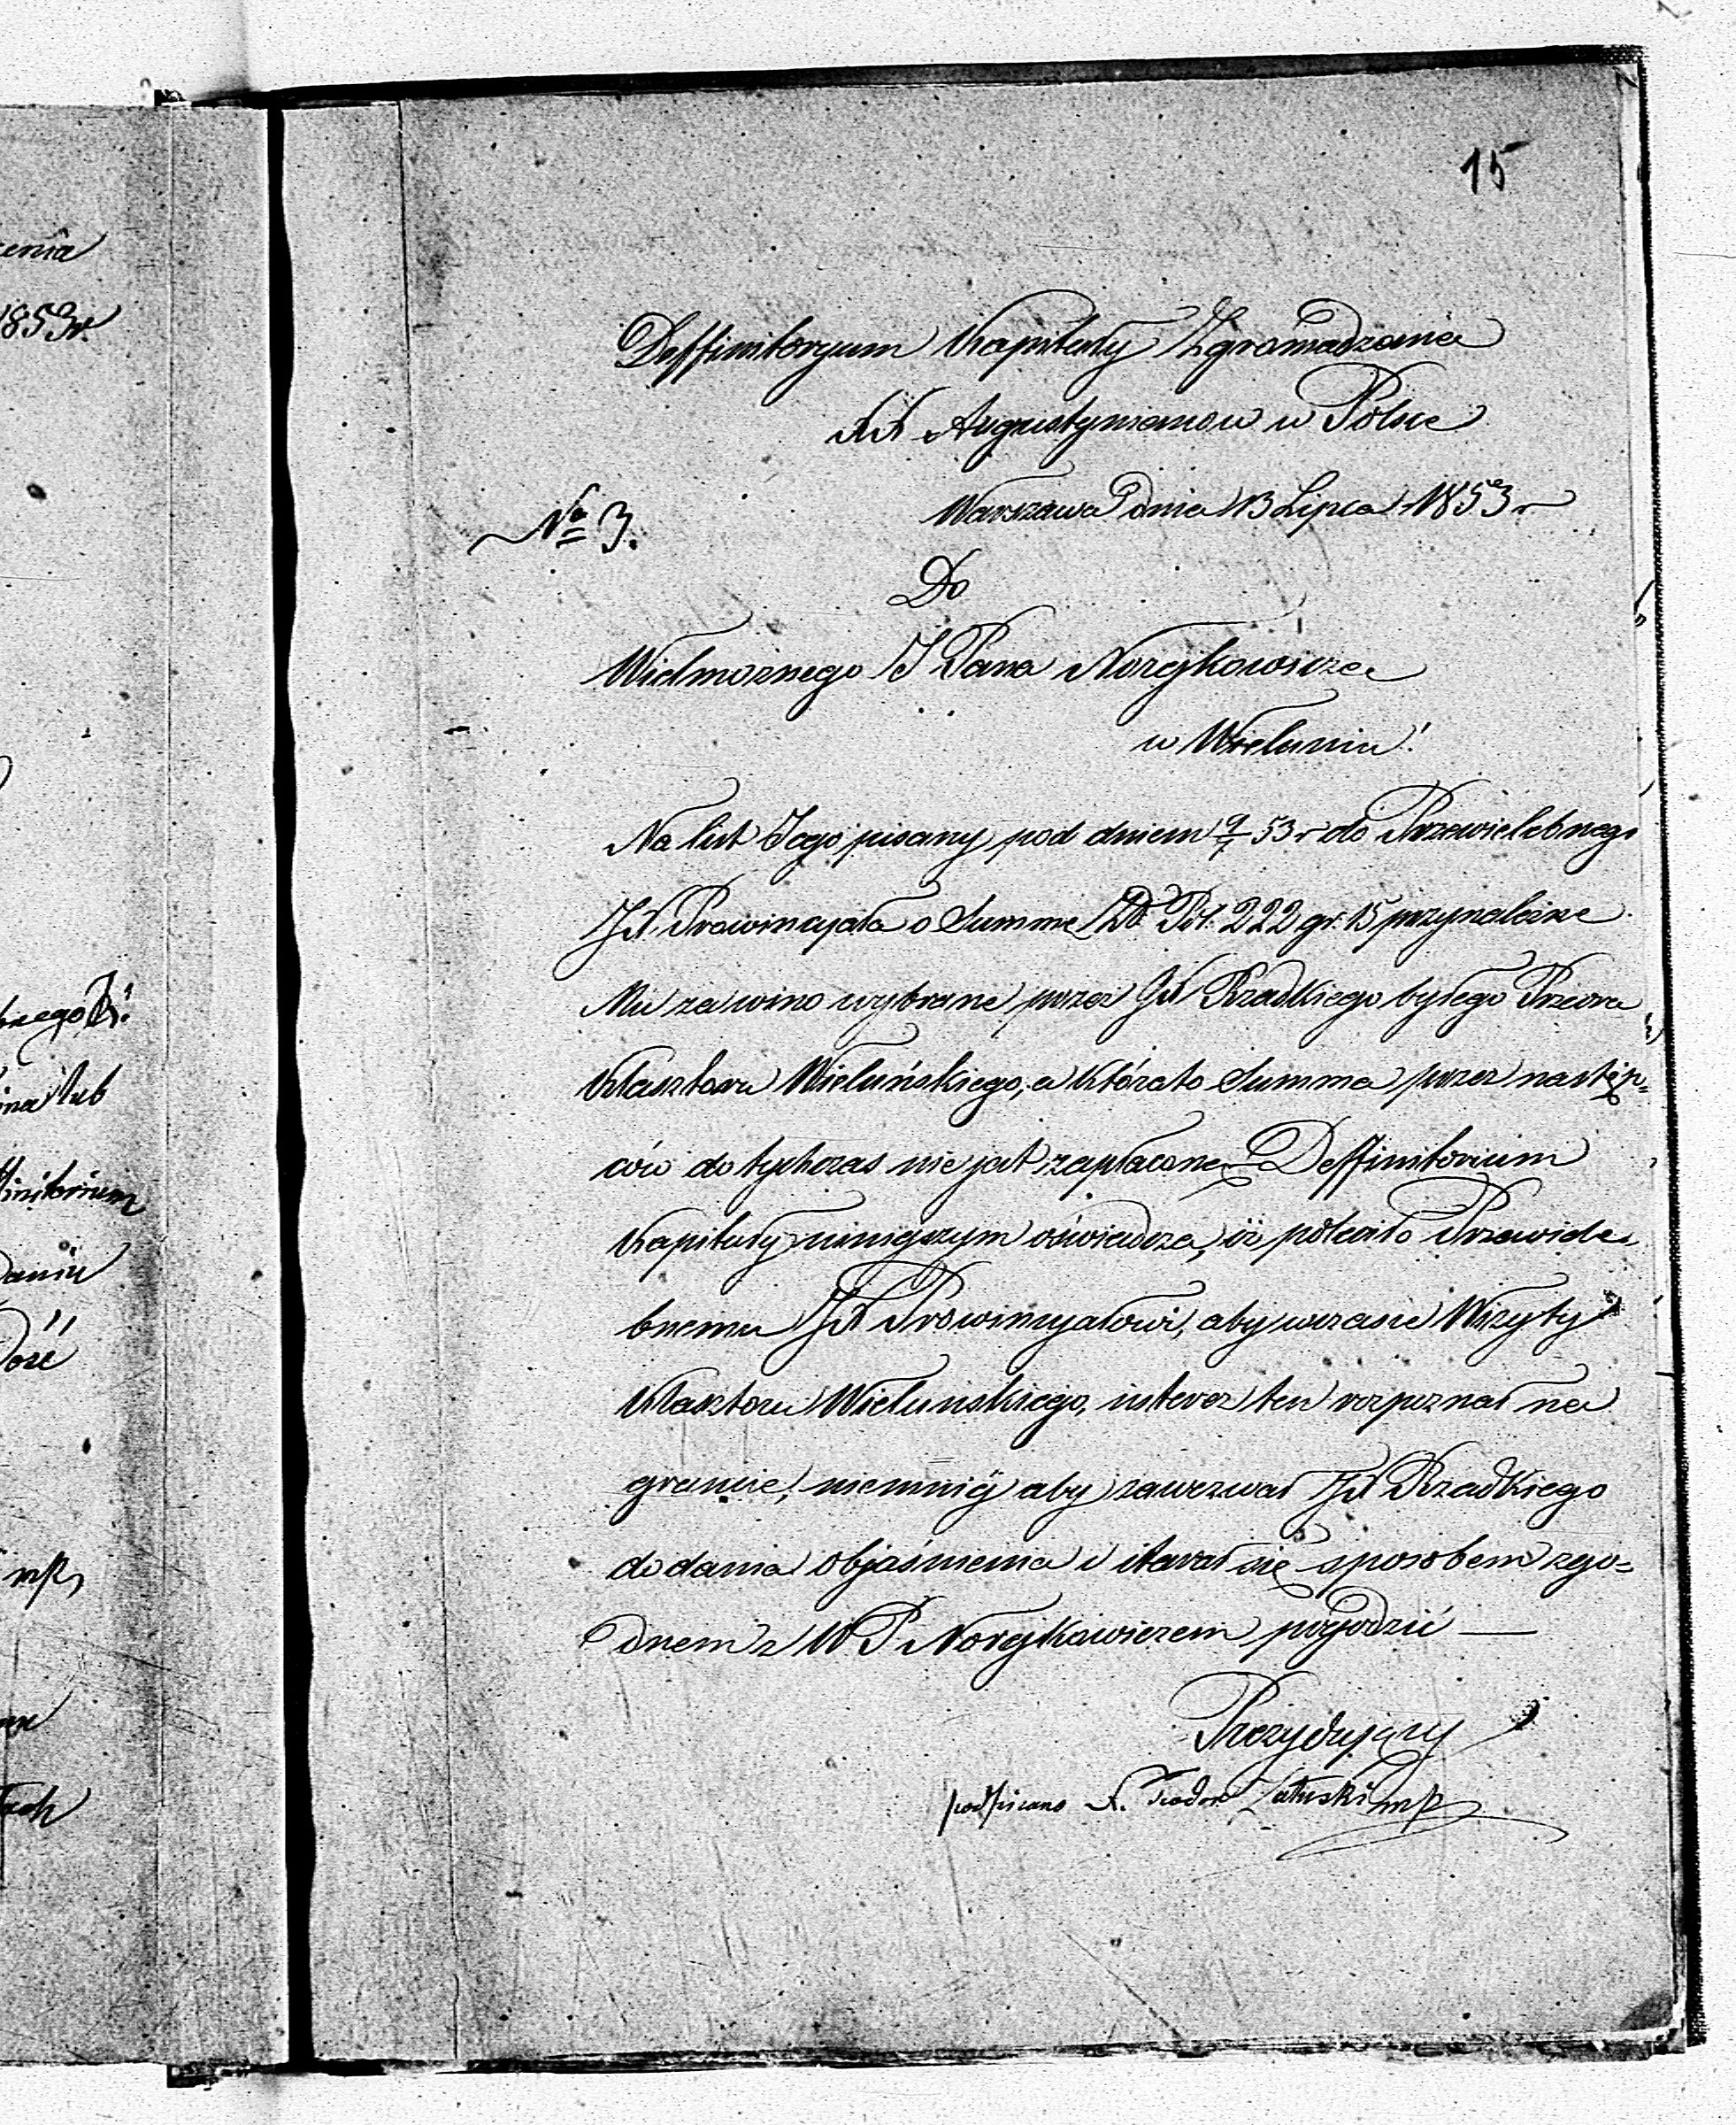 15
Deffinitoryum Kapituły Zgromadzenia
XX Augustyanow w Polsce
Warszawa dnia 13 Lipca 1853 r
No 3.
Do
Wielmoznego J Pana Noreykowicza
w Wieluniu!
Na list Jego pisany pod dniem 9/7 53 r do Przewielebnego
JX. Prowincyała o Summę Złt. Pol. 222 gr. 15 przynależne
Mu za wino wybrane przez JX Rzadkiego byłego Przeora
Klasztoru Wieluńskiego, a któráto Summa przez następ=
ców do tychczas nie jest zapłaconą – Deffinitorium
Kapituły niniejszym oświadcza, iż poleciło Przewiele
bnemu JX Prowincyałowi, aby w czasie Wizyty
Klasztoru Wieluńskiego, interes ten rozpoznał na
gruncie, niemniéj aby zawezwał JX Rzadkiego
do dania objaśnienia i starał się sposobem zgo=
dnem z W P Norejkowiczem pogodzić —
Prezydujący
podpisano X. Teodor Załuski mp
enia
1853r.
bnego X.
ina lub
ffinitorium
daniu
dość
mp